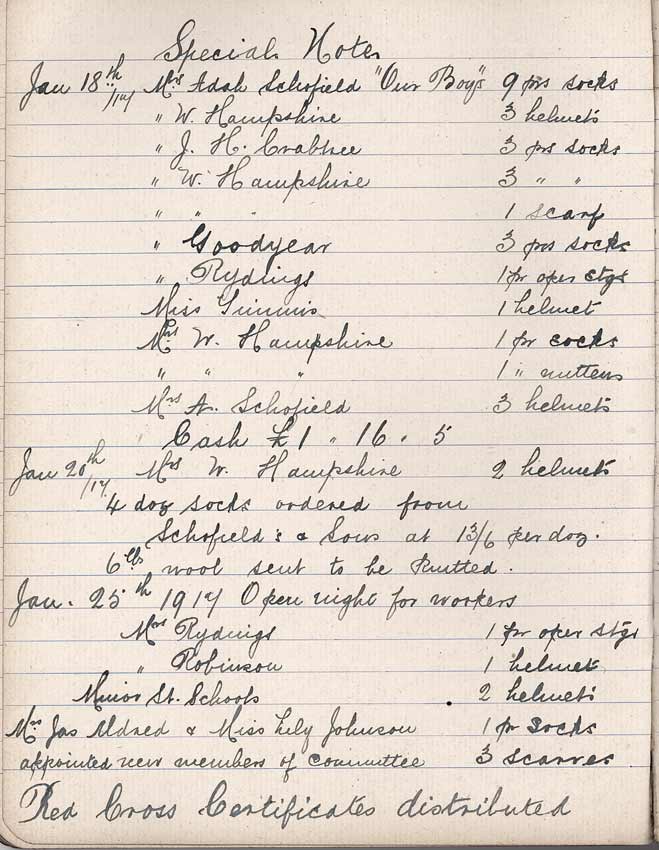 Special Notes
Jan 18th /17 Mrs Adah Schofield "Our Boys" 9 prs socks
" W. Hampshire 3 helmets
" J. H. Crabtree 3 prs socks
" W. Hampshire 3 " "
" " " 1 scarf
" Goodyear 3 prs socks
" Rydings 1 pr oper stgs
Miss Timmis 1 helmet
Mrs W. Hampshire 1 pr socks
" " " 1 " mittens
Mrs A. Schofield 3 helmets
Cash £1 " 16 " 5
Jan 20th /17. Mrs W. Hampshire 2 helmets
4 doz socks ordered from
Schofield's & Sons at 13/6 per doz.
6 lbs wool sent to be knitted.
Jan. 25th 1917 Open night for workers
Mrs Rydings 1 pr oper stgs
" Robinson 1 helmet
Minor St. Schools 2 helmets
Mrs Jas Aldred & Miss Lily Johnson 1 pr socks
appointed new members of committee 3 scarves
Red Cross Certificates distributed